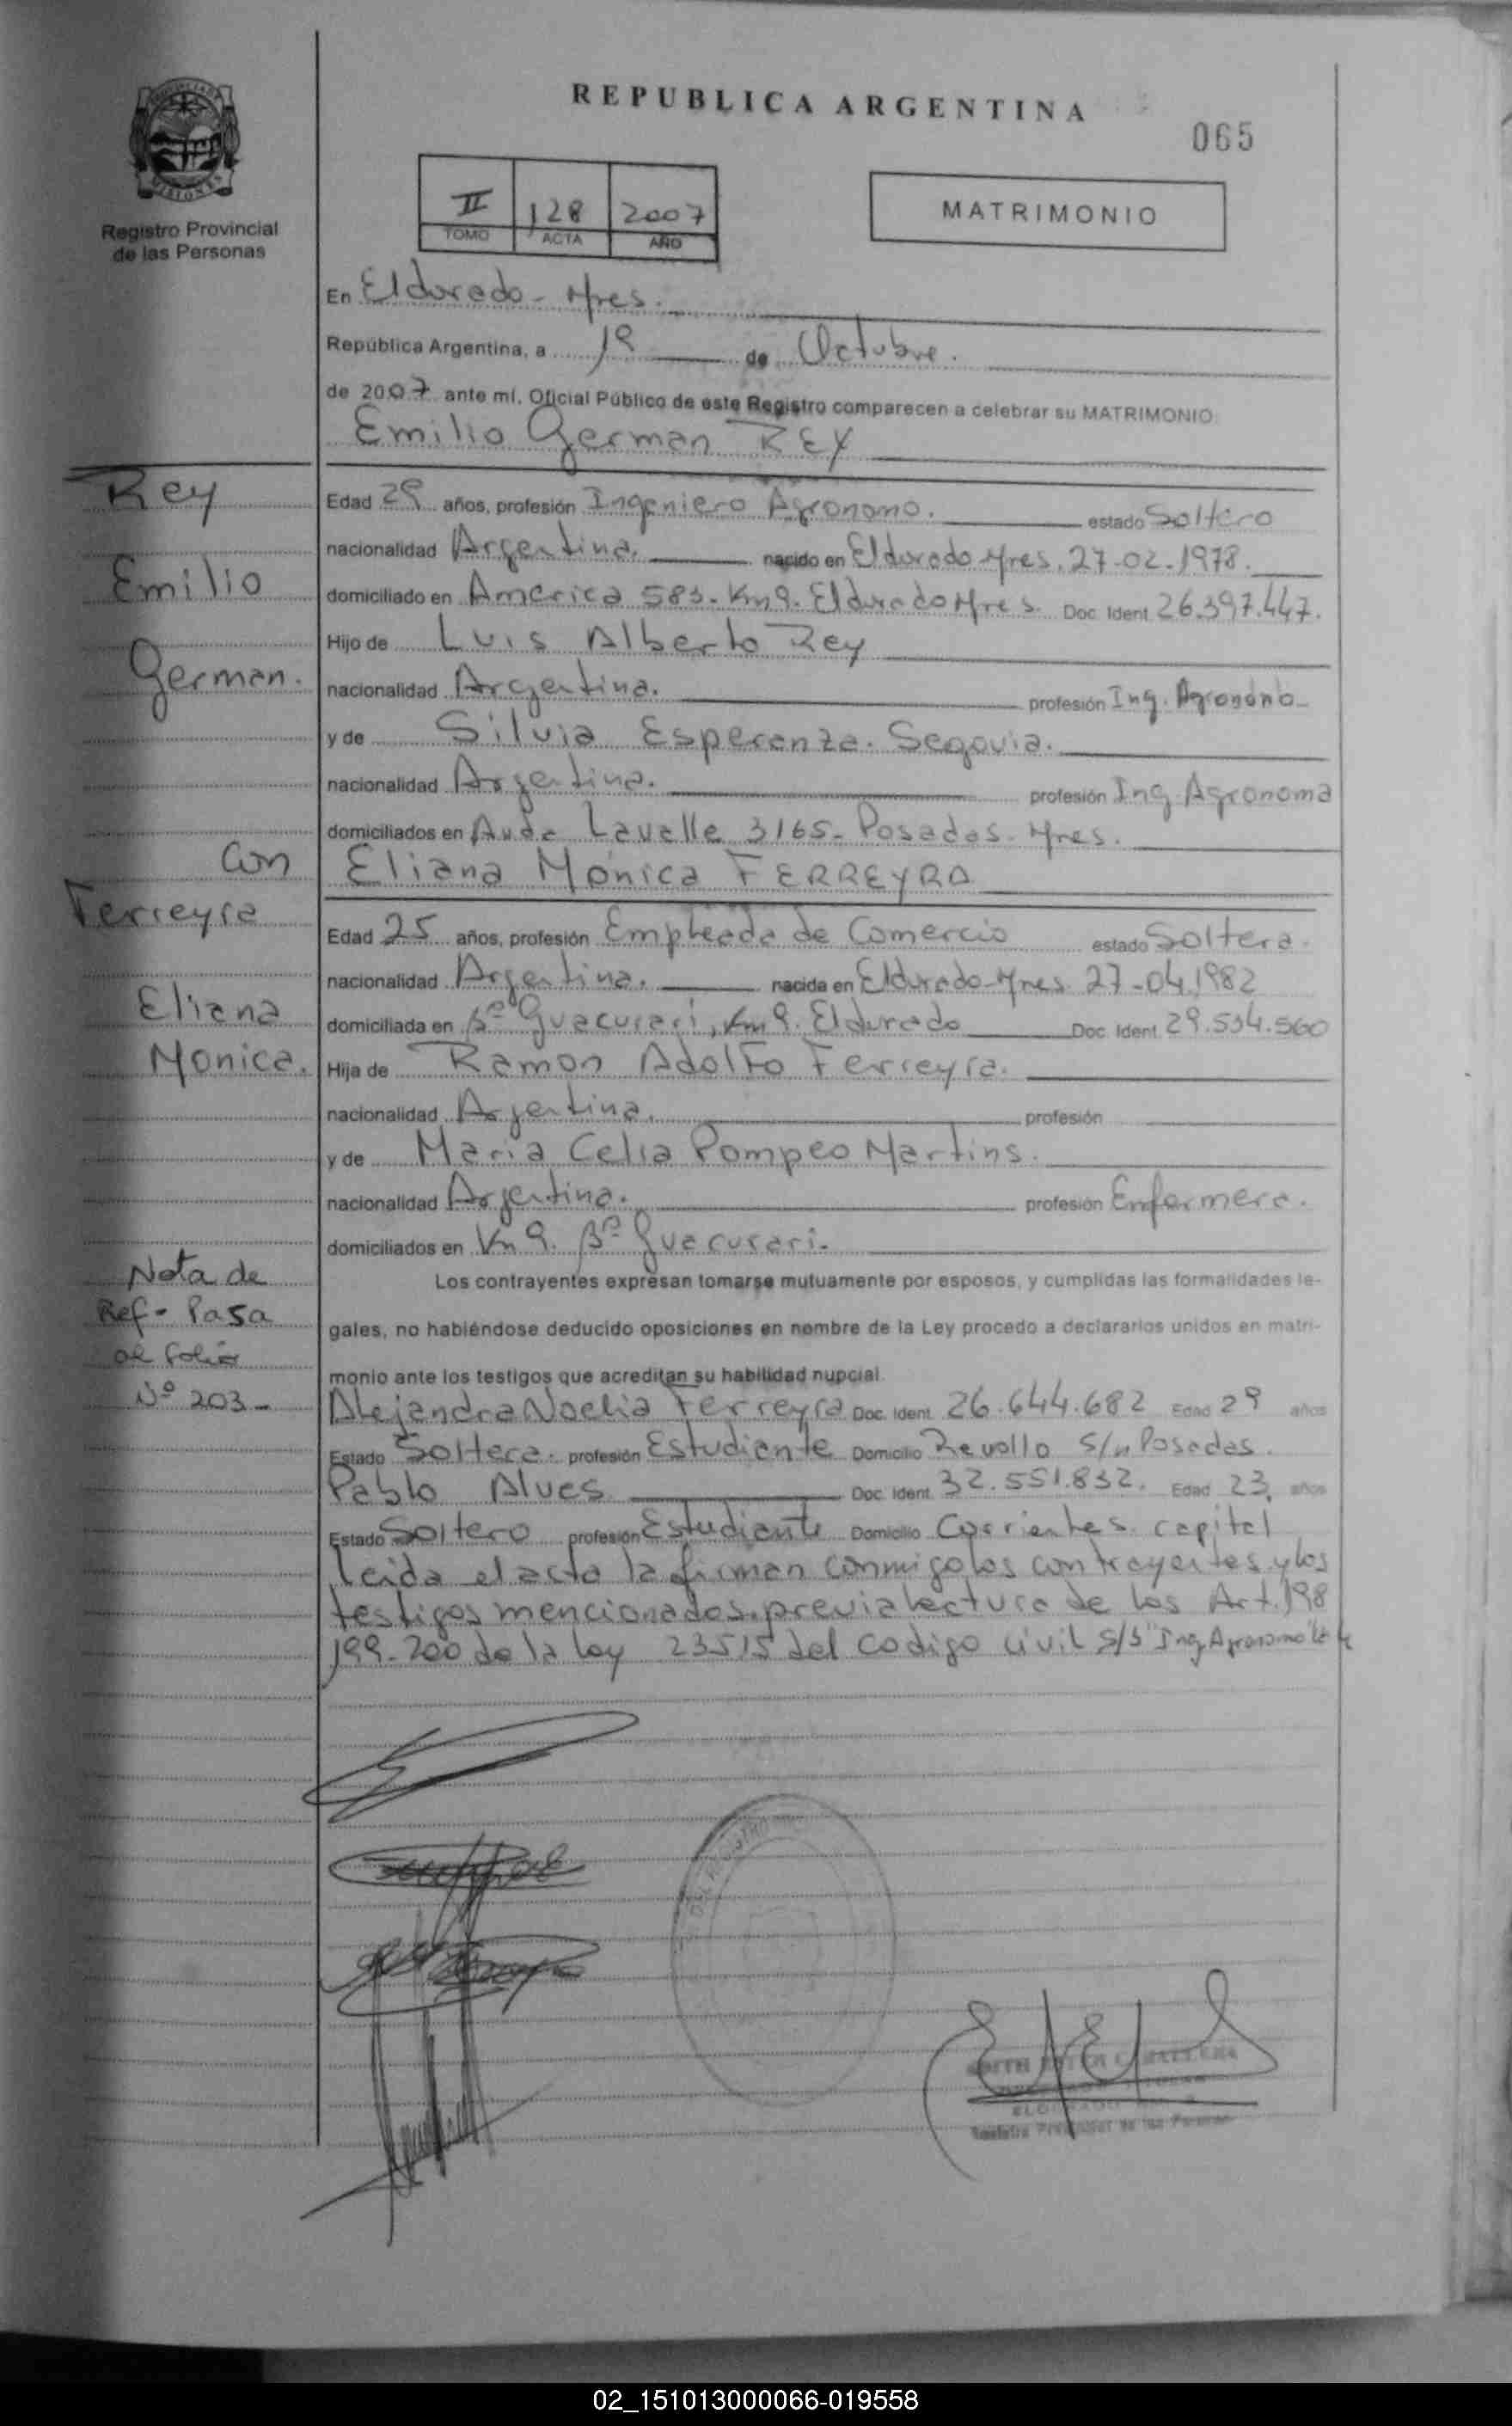 REPUBLICA ARGENTINA
065
Registro Provincial
de las Personas
II 128 2007
TOMO ACTA AÑO
MATRIMONIO
En Eldorado - Mnes.
República Argentina, a 19 de Octubre.
de 2007 ante mí, Oficial Público de este Registro comparecen a celebrar su MATRIMONIO
Emilio German REY
Rey
Emilio
German.
Con
Ferreyra
Eliana
Monica.
Edad 29 años, profesión Ingeniero Agronomo. estado Soltero
nacionalidad Argentina. nacido en Eldorado Mnes. 27-02-1978.
domiciliado en America 583. Km 9. Eldorado Mnes. Doc. Ident. 26.397.447.
Hijo de Luis Alberto Rey
nacionalidad Argentina. profesión Ing. Agronomo
y de Silvia Esperanza. Segovia.
nacionalidad Argentina. profesión Ing Agronoma
domiciliados en Avda Lavalle 3165- Posadas- Mnes.
Eliana Mónica FERREYRA
Edad 25 años, profesión Empleada de Comercio estado Soltera.
nacionalidad Argentina. nacida en Eldorado-Mnes 27-04.1982
domiciliada en Bº Guacurari, Km 9. Eldorado Doc. Ident. 29.534.560
Hija de Ramon Adolfo Ferreyra.
nacionalidad Argentina. profesión
y de Maria Celia Pompeo Martins.
nacionalidad Argentina. profesión Enfermera.
domiciliados en Km 9. Bº Guacurari.
Nota de
Ref- Pasa
al folio
Nº 203-
Los contrayentes expresan tomarse mutuamente por esposos, y cumplidas las formalidades le-
gales, no habiéndose deducido oposiciones en nombre de la Ley procedo a declararlos unidos en matri-
monio ante los testigos que acreditan su habilidad nupcial.
Alejandra Noelia Ferreyra Doc. Ident. 26.644.682 Edad 29 años
Estado Soltera. profesión Estudiante Domicilio Revollo S/n Posadas.
Pablo Alves Doc. Ident. 32.551.832. Edad 23, años
Estado Soltero profesión Estudiante Domicilio Corrientes. capital
Leida el acta la firman conmigo los contrayentes y los
testigos mencionados. previa lectura de los Art. 198
199-200 de la ley 23515 del codigo civil S/S "Ing. Agronomo"
02_151013000066-019558